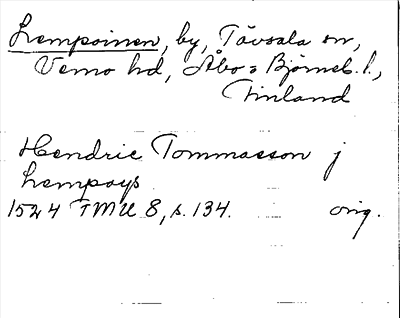 Lempoinen, by, Tävsala sn,
Vemo hd, Åbo = Björneb. l.,
Finland
Hendric Tommasson j
Lempoys
1524 TMU 8, s. 134. orig.